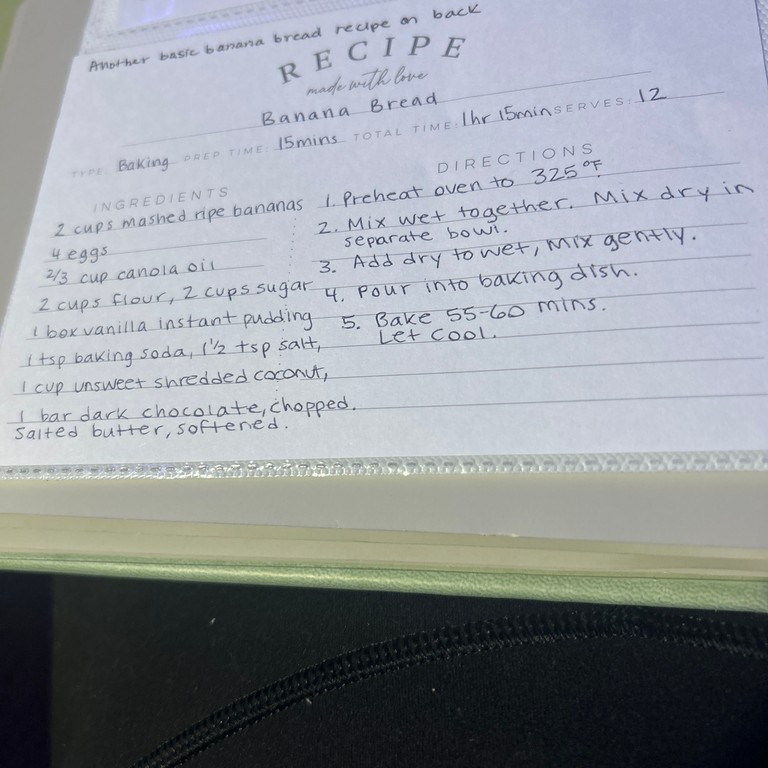 Another basic banana bread recipe on back
RECIPE
made with love
Banana Bread
TYPE: Baking PREP TIME: 15mins TOTAL TIME: 1hr 15min SERVES: 12
INGREDIENTS
2 cups mashed ripe bananas
4 eggs
2/3 cup canola oil
2 cups flour, 2 cups sugar
1 box vanilla instant pudding
1 tsp baking soda, 1½ tsp salt,
1 cup unsweet shredded coconut,
1 bar dark chocolate, chopped.
Salted butter, softened.
DIRECTIONS
1. Preheat oven to 325°F.
2. Mix wet together. Mix dry in
separate bowl.
3. Add dry to wet, mix gently.
4. Pour into baking dish.
5. Bake 55-60 mins.
Let cool.